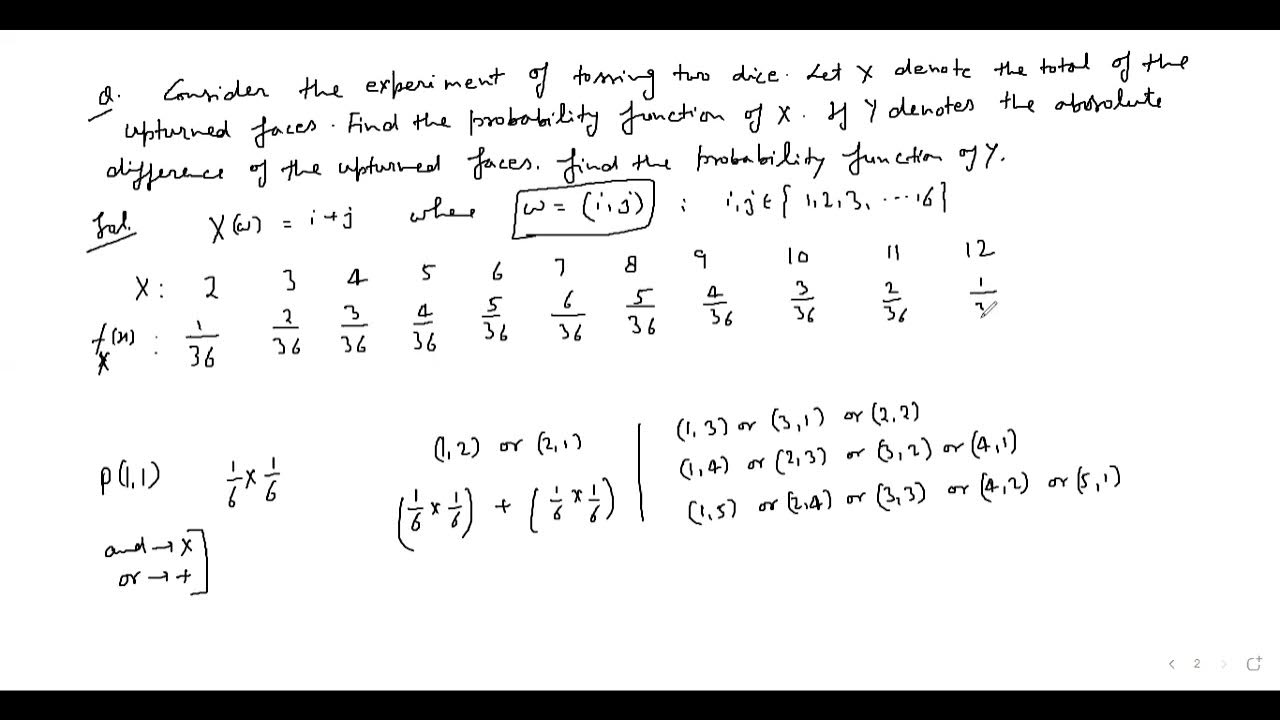 Q. Consider the experiment of tossing two dice. Let X denote the total of the
upturned faces. Find the probability function of X. If Y denotes the absolute
difference of the upturned faces. Find the probability function of Y.
Sol. X(ω) = i+j where ω = (i,j) : i,j ∈ { 1,2,3, ....,6}
X: 2 3 4 5 6 7 8 9 10 11 12
f_X(x) : 1/36 2/36 3/36 4/36 5/36 6/36 5/36 4/36 3/36 2/36 1/3
(1,3) or (3,1) or (2,2)
(1,2) or (2,1) (1,4) or (2,3) or (3,2) or (4,1)
P(1,1) 1/6 × 1/6 (1/6 × 1/6) + (1/6 × 1/6) (1,5) or (2,4) or (3,3) or (4,2) or (5,1)
and → ×
or → +
2